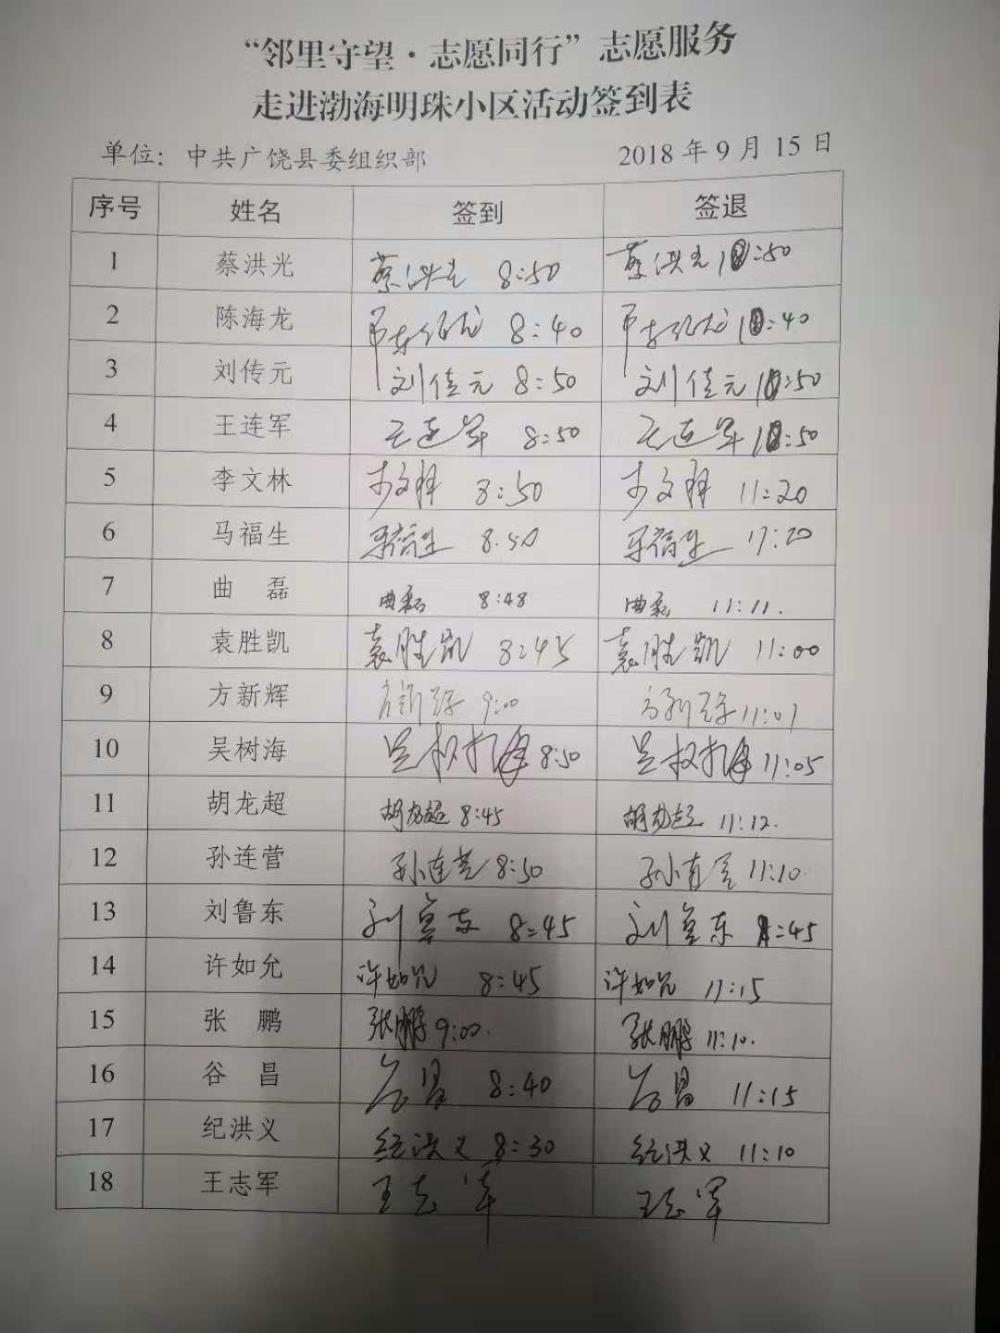 “邻里守望·志愿同行”志愿服务
走进渤海明珠小区活动签到表
单位：中共广饶县委组织部 2018年9月15日
序号 姓名 签到 签退
1 蔡洪光 蔡洪光 8:50 蔡洪光 :50
2 陈海龙 陈海龙 8:40 陈海龙 :40
3 刘传元 刘传元 8:50 刘传元 :50
4 王连军 王连军 8:50 王连军 :50
5 李文林 李文林 8:50 李文林 11:20
6 马福生 马福生 8:50 马福生 11:20
7 曲 磊 曲磊 8:48 曲磊 11:11.
8 袁胜凯 袁胜凯 8:45 袁胜凯 11:00
9 方新辉 方新辉 9:00 方新辉 11:01
10 吴树海 吴树海 8:50 吴树海 11:05
11 胡龙超 胡龙超 8:45 胡龙超 11:12.
12 孙连营 孙连营 8:50 孙连营 11:10.
13 刘鲁东 刘鲁东 8:45 刘鲁东 :45
14 许如允 许如允 8:45 许如允 11:15
15 张 鹏 张鹏 9:00. 张鹏 11:10.
16 谷 昌 谷昌 8:40 谷昌 11:15
17 纪洪义 纪洪义 8:30 纪洪义 11:10
18 王志军 王志军 王志军